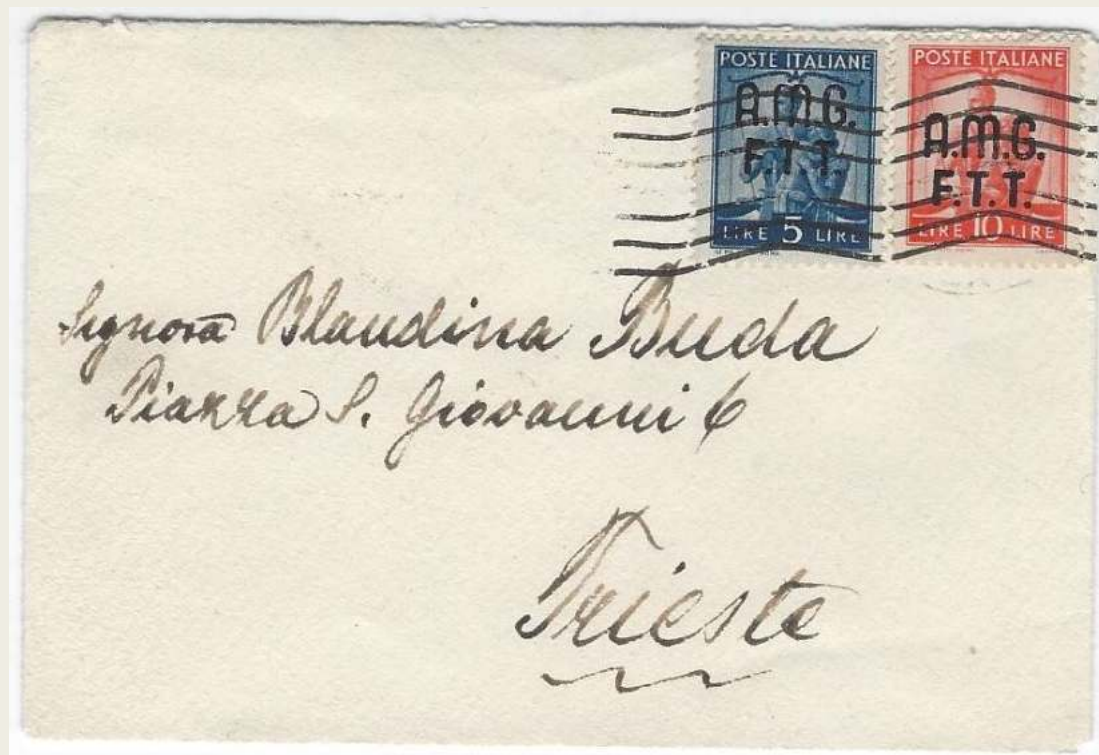 POSTE ITALIANE
A.M.G.
F.T.T.
LIRE 5 LIRE
POSTE ITALIANE
A.M.G.
F.T.T.
LIRE 10 LIRE
Signora Blandina Buda
Piazza S. Giovanni 6
Trieste